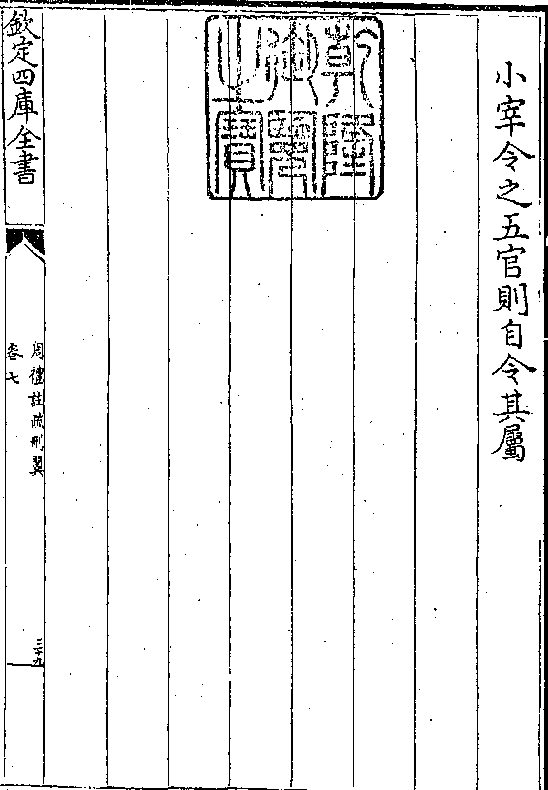 小宰令之五官則自令其屬
乾隆御覽之寶
欽定四庫全書
周禮註疏刪翼
卷七
三十九